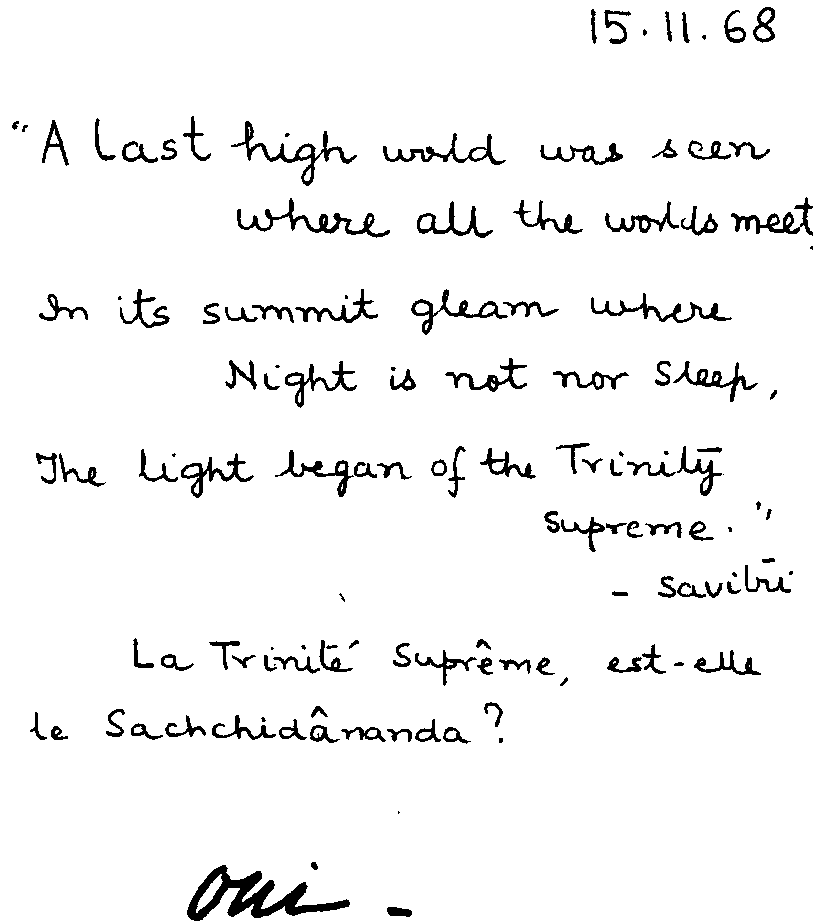 15.11.68
"A last high world was seen
where all the worlds meet,
In its summit gleam where
Night is not nor Sleep,
The light began of the Trinity
Supreme."
- Savitri
La Trinité Suprême, est-elle
le Sachchidânanda?
oui -